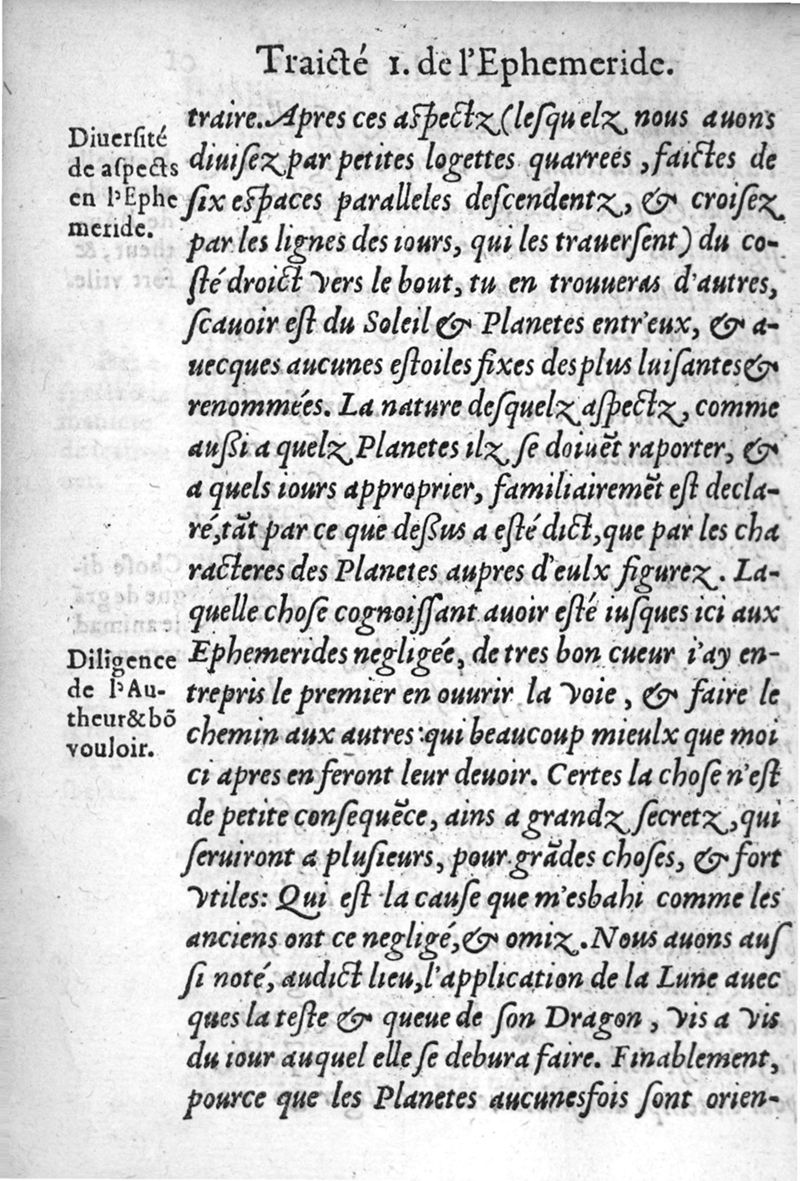 Traicté 1. de l'Ephemeride.
Diuerſité
de aſpects
en l'Ephe
meride.
traire. Apres ces aſpectz (leſquelz nous auons
diuiſez par petites logettes quarreés, faictes de
ſix eſpaces paralleles deſcendentz, & croiſez
par les lignes des iours, qui les trauerſent) du co-
ſté droict vers le bout, tu en trouueras d'autres,
ſcauoir eſt du Soleil & Planetes entr'eux, & a-
uecques aucunes eſtoiles fixes des plus luiſantes &
renommées. La nature deſquelz aſpectz, comme
auſsi a quelz Planetes ilz ſe doiuẽt raporter, &
a quels iours approprier, familiairemẽt eſt decla-
ré, tãt par ce que deſſus a eſté dict, que par les cha
racteres des Planetes aupres d'eulx figurez. La-
quelle choſe cognoiſſant auoir eſté iuſques ici aux
Ephemerides negligée, de tres bon cueur i'ay en-
trepris le premier en ouurir la voie, & faire le
chemin aux autres: qui beaucoup mieulx que moi
ci apres en feront leur deuoir. Certes la choſe n'eſt
de petite conſequẽce, ains a grandz ſecretz, qui
ſeruiront a pluſieurs, pour grãdes choſes, & fort
vtiles: Qui eſt la cauſe que m'esbahi comme les
anciens ont ce negligé, & omiz. Nous auons auſ
ſi noté, audict lieu, l'application de la Lune auec
ques la teſte & queue de ſon Dragon, vis a vis
du iour auquel elle ſe debura faire. Finablement,
pource que les Planetes aucunesfois ſont orien-
Diligence
de l'Au-
theur & bõ
vouloir.